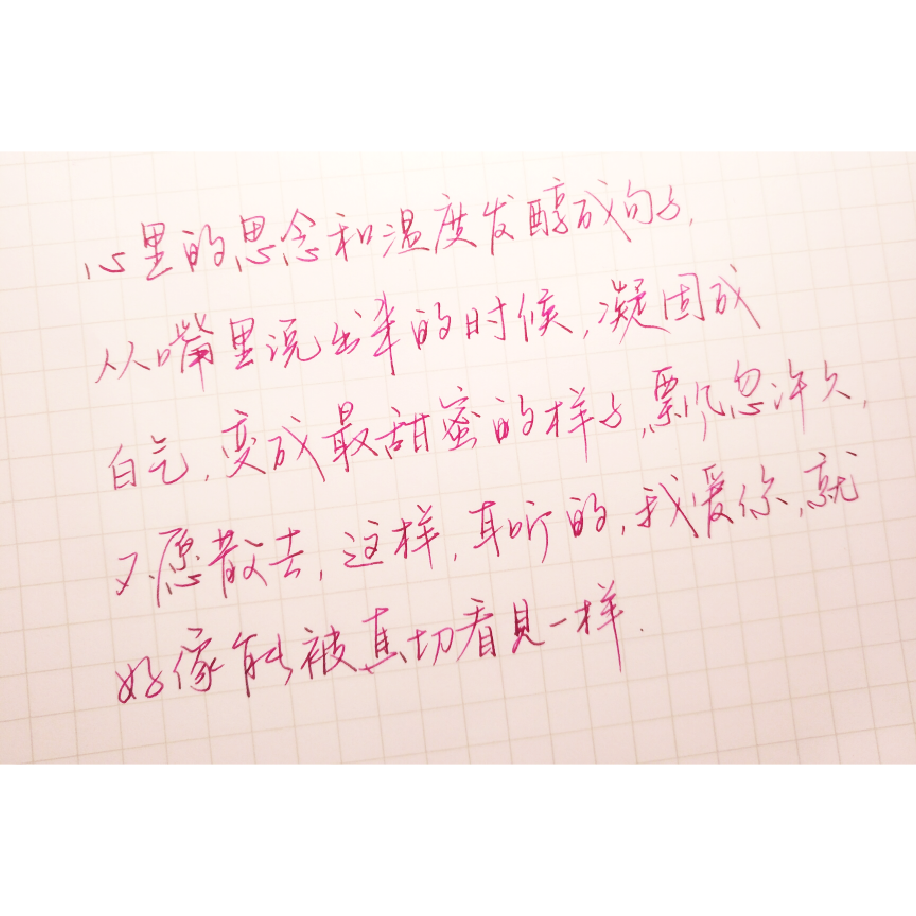 心里的思念和温度发酵成句子,
从嘴里说出来的时候,凝固成
白气,变成最甜蜜的样子,飘忽许久,
不愿散去,这样,耳听的,我爱你,就
好像能被真切看見一样.